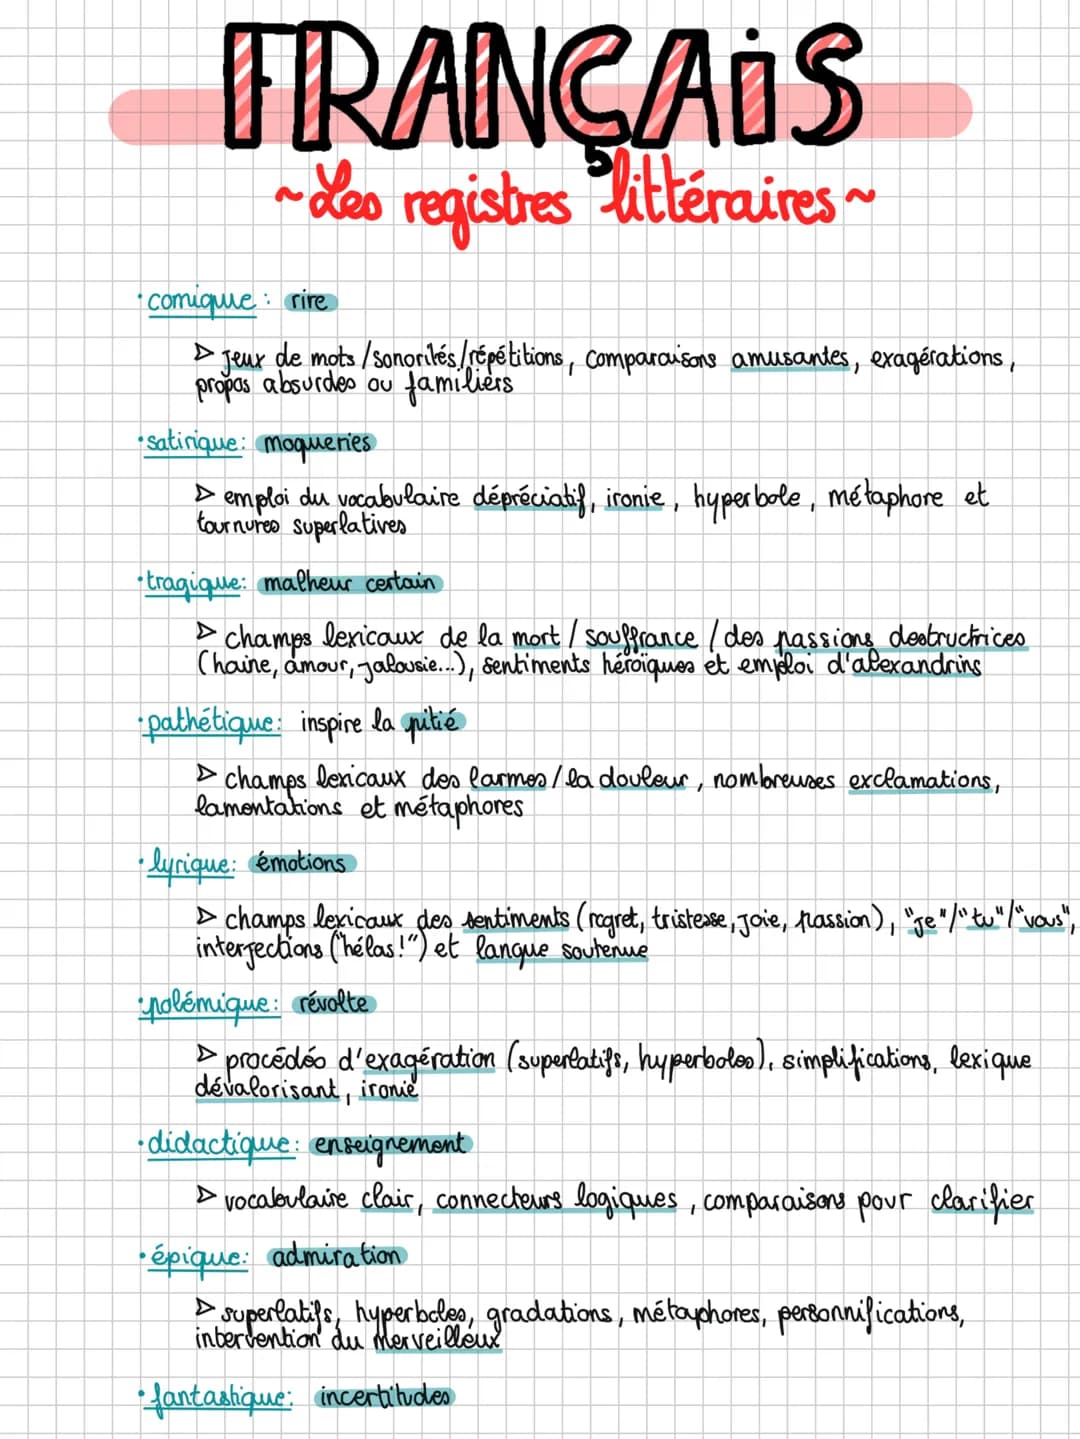 FRANÇAIS
~Les registres littéraires~
• comique : rire
▷ jeux de mots /sonorités/répétitions, comparaisons amusantes, exagérations,
propos absurdes ou familiers
• satirique: moqueries
▷ emploi du vocabulaire dépréciatif, ironie, hyperbole, métaphore et
tournures superlatives
• tragique: malheur certain
▷ champs lexicaux de la mort / souffrance / des passions destructrices
(haine, amour, jalousie...), sentiments héroïques et emploi d'alexandrins
• pathétique: inspire la pitié
▷ champs lexicaux des larmes / la douleur, nombreuses exclamations,
lamentations et métaphores
• lyrique: émotions
▷ champs lexicaux des sentiments (regret, tristesse, joie, passion), "je"/"tu"/"vous",
interjections ("hélas!") et langue soutenue
• polémique: révolte
▷ procédés d'exagération (superlatifs, hyperboles), simplifications, lexique
dévalorisant, ironie
• didactique: enseignement
▷ vocabulaire clair, connecteurs logiques, comparaisons pour clarifier
• épique: admiration
▷ superlatifs, hyperboles, gradations, métaphores, personnifications,
intervention du Merveilleux
• fantastique: incertitudes